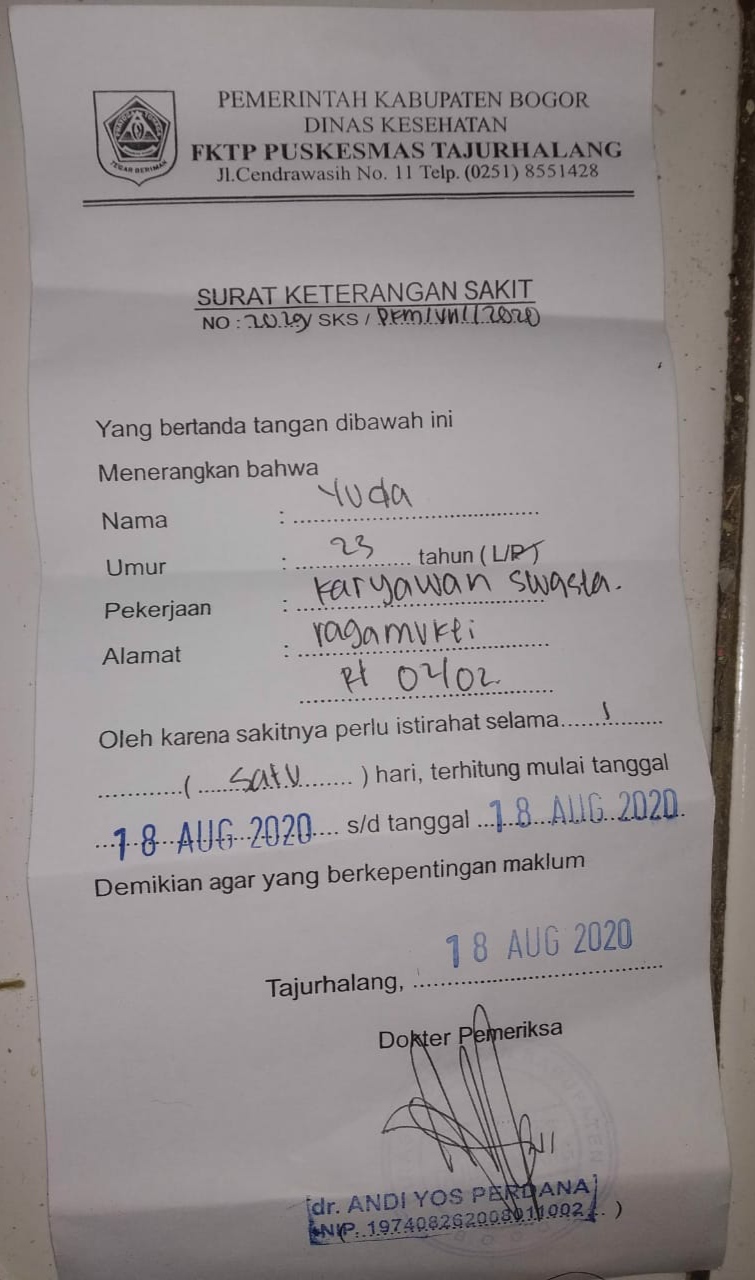 PEMERINTAH KABUPATEN BOGOR
DINAS KESEHATAN
FKTP PUSKESMAS TAJURHALANG
Jl.Cendrawasih No. 11 Telp. (0251) 8551428
TEGAR BERIMAN
SURAT KETERANGAN SAKIT
NO : SKS / PKM/VIII/2020
Yang bertanda tangan dibawah ini
Menerangkan bahwa
Nama : Yuda
Umur : 23 tahun ( L/P )
Pekerjaan : karyawan swasta.
Alamat : ragamukti
Rt 02/02
Oleh karena sakitnya perlu istirahat selama......1.........
............( satu ) hari, terhitung mulai tanggal
18 AUG 2020 s/d tanggal 18 AUG 2020
Demikian agar yang berkepentingan maklum
18 AUG 2020
Tajurhalang,
Dokter Pemeriksa
dr. ANDI YOS PERDANA
NIP. 197408262008011002 )